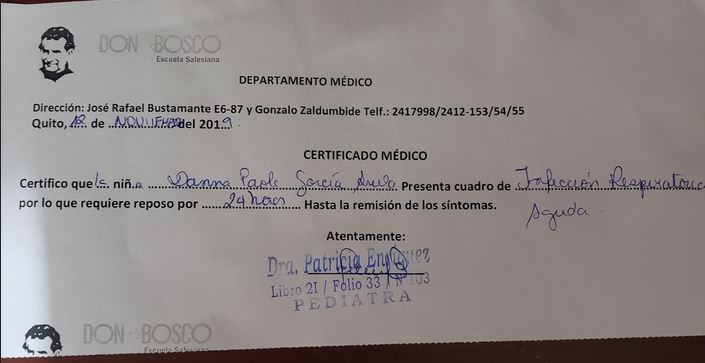 DON BOSCO
Escuela Salesiana
DEPARTAMENTO MÉDICO
Dirección: José Rafael Bustamante E6-87 y Gonzalo Zaldumbide Telf.: 2417998/2412-153/54/55
Quito, 12 de NOVIEMBRE del 2019.
CERTIFICADO MÉDICO
Certifico que la niña Danna Paola García. Presenta cuadro de Infección Respiratoria
por lo que requiere reposo por 24 horas. Hasta la remisión de los síntomas.
Aguda.
Atentamente:
Dra. Patricia Enríquez
Libro 21 / Folio 33 / N° 103
PEDIATRA
DON BOSCO
Escuela Salesiana